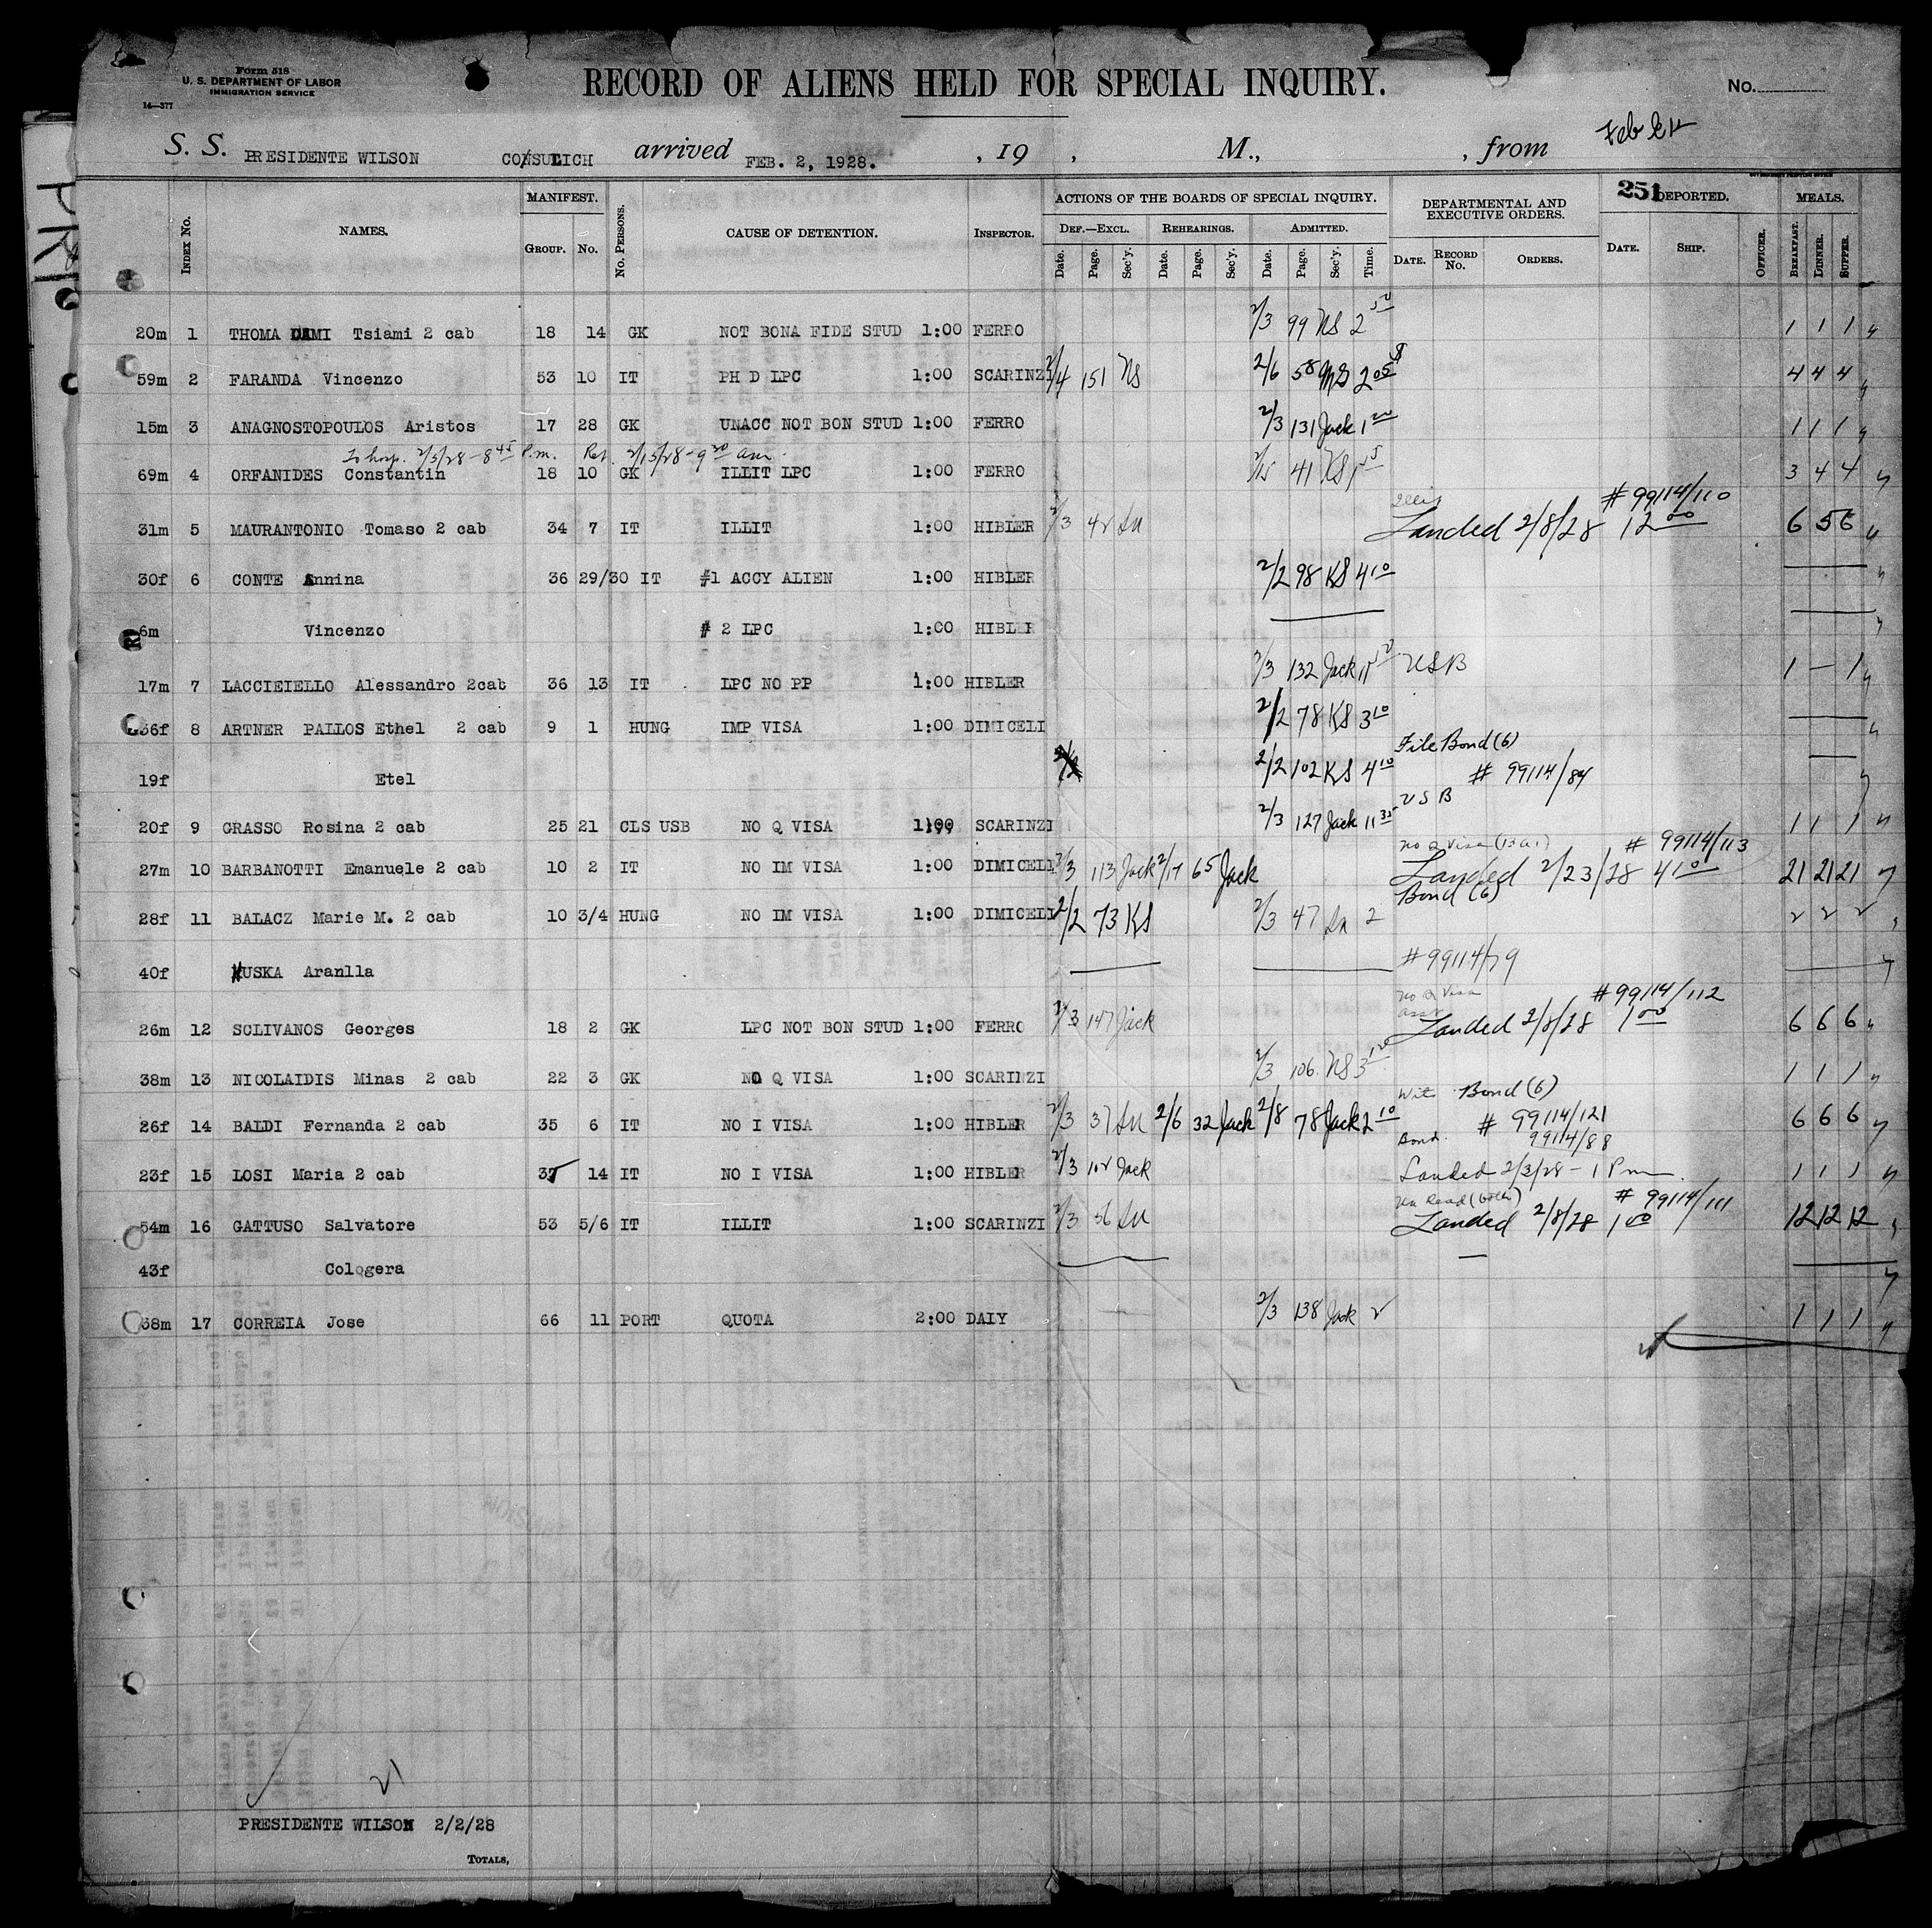 Form 518
U. S. DEPARTMENT OF LABOR
IMMIGRATION SERVICE
14—377
RECORD OF ALIENS HELD FOR SPECIAL INQUIRY.
No.
S. S. PRESIDENTE WILSON COSULICH arrived FEB. 2, 1928. , 19 , M., , from
251
Index No. NAMES. MANIFEST. Group. No. No. Persons. CAUSE OF DETENTION. Inspector. ACTIONS OF THE BOARDS OF SPECIAL INQUIRY. Def.—Excl. Rehearings. Admitted. Date. Page. Sec'y. Date. Page. Sec'y. Date. Page. Sec'y. Time. DEPARTMENTAL AND EXECUTIVE ORDERS. Date. Record No. Orders. DEPORTED. Date. Ship. Officer. MEALS. Breakfast. Dinner. Supper.
20m 1 THOMA DAMI Tsiami 2 cab 18 14 GK NOT BONA FIDE STUD 1:00 FERRO 2/3 99 NS 2 50 1 1 1
59m 2 FARANDA Vincenzo 53 10 IT PH D LPC 1:00 SCARINZI 2/4 151 NS 2/6 58 2 05 4 4 4
15m 3 ANAGNOSTOPOULOS Aristos 17 28 GK UNACC NOT BON STUD 1:00 FERRO 2/3 131 Jack 1 1 1 1
To hosp. 2/5/28 - 8 45 P.m. Ret. 2/15/28 - 9 30 am.
69m 4 ORFANIDES Constantin 18 10 GK ILLIT LPC 1:00 FERRO 2/15 41 KS 3 4 4
# 99114/110
31m 5 MAURANTONIO Tomaso 2 cab 34 7 IT ILLIT 1:00 HIBLER 2/3 42 Landed 2/8/28 12 00 6 5 6
30f 6 CONTE Annina 36 29/30 IT #1 ACCY ALIEN 1:00 HIBLER 2/2 98 KS 4 10
6m Vincenzo # 2 LPC 1:00 HIBLER
17m 7 LACCIEIELLO Alessandro 2cab 36 13 IT LPC NO PP 1:00 HIBLER 2/3 132 Jack USB 1 — 1
36f 8 ARTNER PALLOS Ethel 2 cab 9 1 HUNG IMP VISA 1:00 DIMICELI 2/2 78 KS 3 10
File Bond (6)
19f Etel 2/2 102 KS 4 10 # 99114/84
USB
20f 9 GRASSO Rosina 2 cab 25 21 CLS USB NO Q VISA 1:00 SCARINZI 2/3 127 Jack 11 35 1 1 1
# 99114/113
27m 10 BARBANOTTI Emanuele 2 cab 10 2 IT NO IM VISA 1:00 DIMICELI 2/3 113 Jack 2/17 65 Jack Landed 2/23/28 4 10 21 21 21
Bond (6)
28f 11 BALACZ Marie M. 2 cab 10 3/4 HUNG NO IM VISA 1:00 DIMICELI 2/2 73 KS 2/3 47 2 2 2 2
40f HUSKA Aranlla # 99114/79
No Q Visa # 99114/112
26m 12 SCLIVANOS Georges 18 2 GK LPC NOT BON STUD 1:00 FERRO 2/3 147 Jack Landed 2/8/28 1 00 6 6 6
38m 13 NICOLAIDIS Minas 2 cab 22 3 GK NO Q VISA 1:00 SCARINZI 2/3 106 NS 3 1 1 1
Wit Bond (6)
26f 14 BALDI Fernanda 2 cab 35 6 IT NO I VISA 1:00 HIBLER 2/3 37 2/6 32 Jack 2/8 78 Jack 2 10 # 99114/121 6 6 6
Bond. 99114/88
23f 15 LOSI Maria 2 cab 37 14 IT NO I VISA 1:00 HIBLER 2/3 102 Jack Landed 2/3/28 - 1 Pm 1 1 1
# 99114/111
54m 16 GATTUSO Salvatore 53 5/6 IT ILLIT 1:00 SCARINZI 2/3 56 Landed 2/8/28 1 00 12 12 12
43f Cologera
38m 17 CORREIA Jose 66 11 PORT QUOTA 2:00 DAIY 2/3 138 Jack 2 1 1 1
21
PRESIDENTE WILSON 2/2/28
Totals,